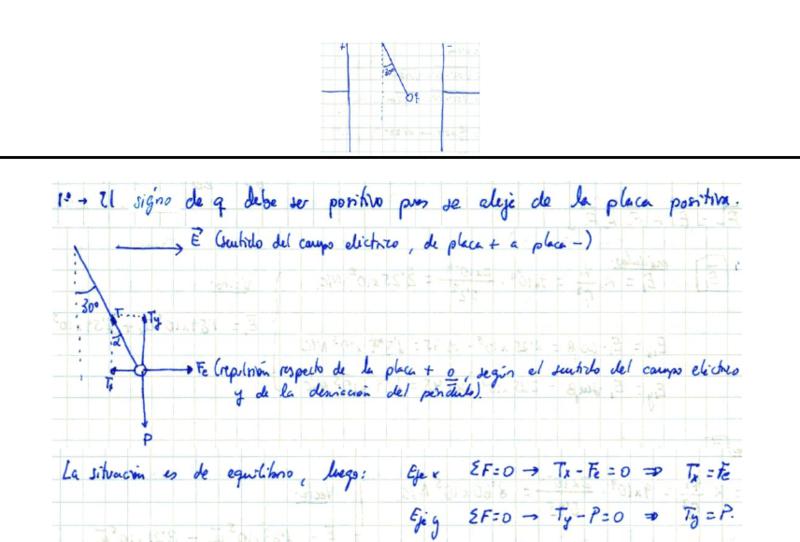 + -
30°
q
1º → El signo de q debe ser positivo pues se aleja de la placa positiva.
E (sentido del campo eléctrico, de placa + a placa -)
30°
T Ty
α
Tx Fe (repulsión respecto de la placa + o, según el sentido del campo eléctrico
y de la desviación del péndulo).
P
La situación es de equilibrio, luego: Eje x ΣF=0 → Tx - Fe = 0 ⇒ Tx = Fe
Eje y ΣF=0 → Ty - P = 0 ⇒ Ty = P.